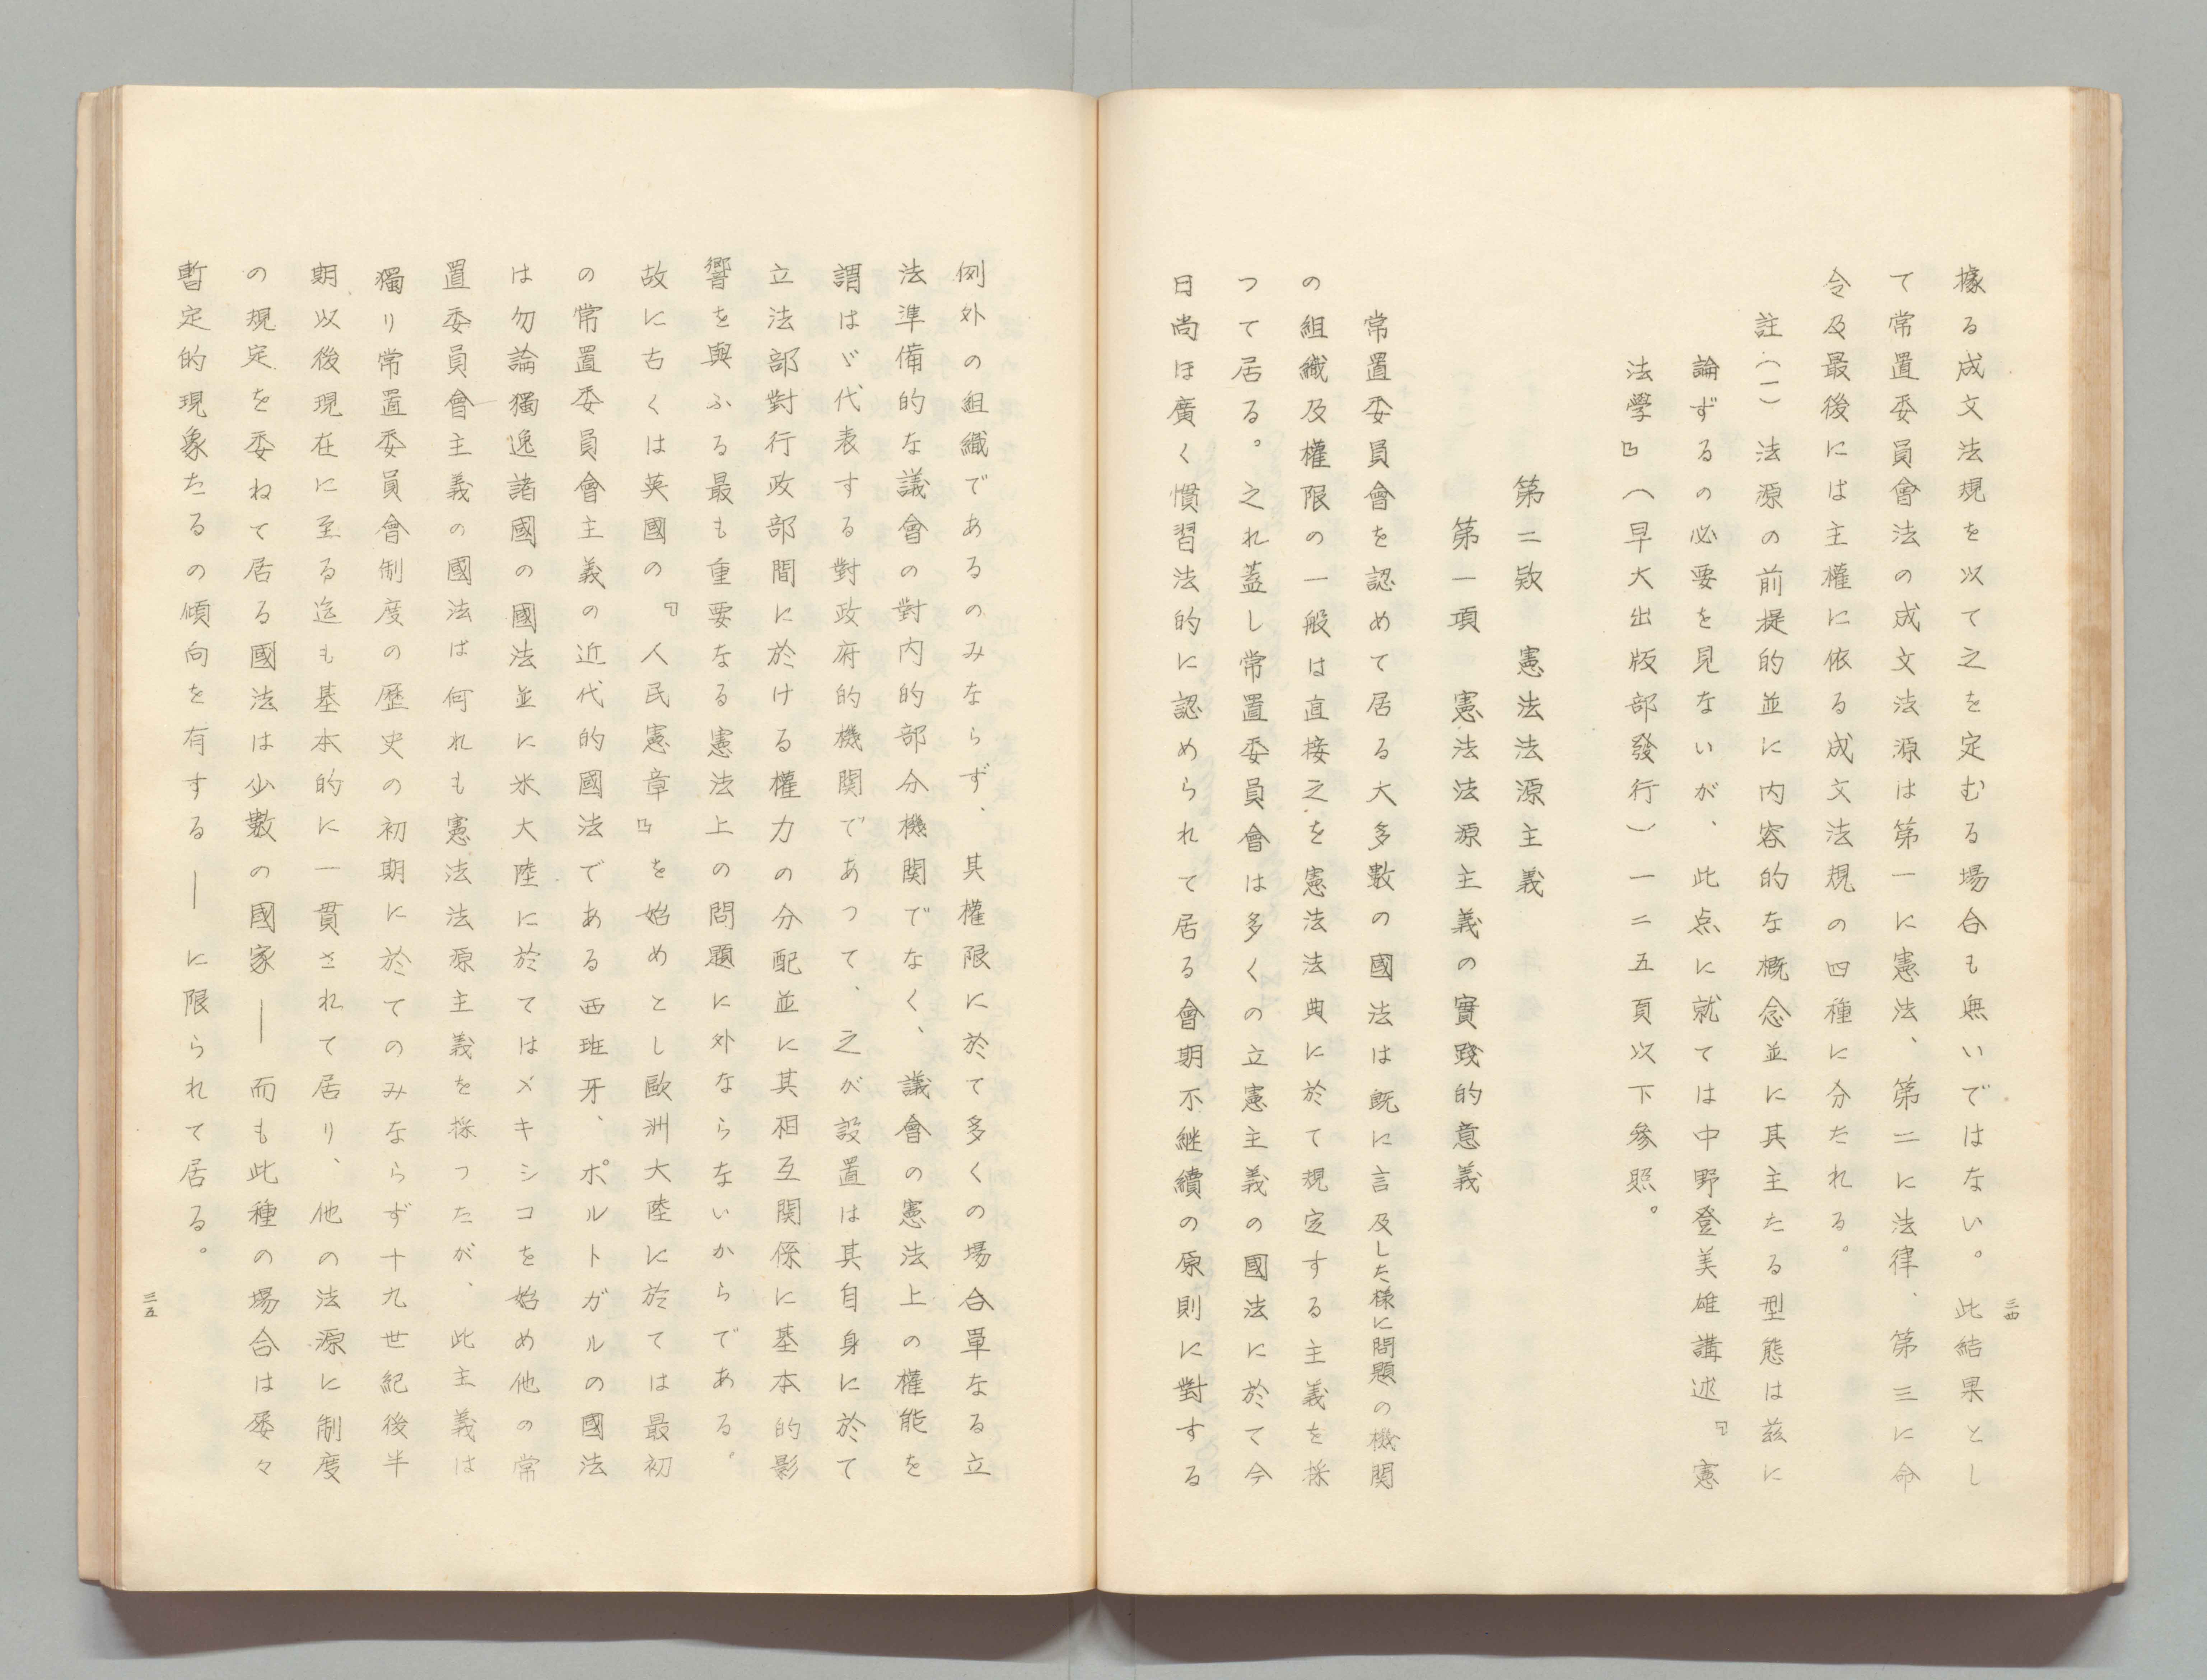 三四
據る成文法規を以て之を定むる場合も無いではない。此結果とし
て常置委員會法の成文法源は第一に憲法、第二に法律、第三に命
令及最後には主權に依る成文法規の四種に分たれる。
註(一)法源の前提的並に内容的な概念並に其主たる型態は茲に
論ずるの必要を見ないが、此点に就ては中野登美雄講述『憲
法學』(早大出版部發行)一二五頁以下參照。
第二欵　憲法法源主義
第一項　憲法法源主義の實踐的意義
常置委員會を認めて居る大多數の國法は既に言及した樣に問題の機関
の組織及權限の一般は直接之を憲法法典に於て規定する主義を採
つて居る。之れ蓋し常置委員會は多くの立憲主義の國法に於て今
日尚ほ廣く慣習法的に認められて居る會期不継續の原則に對する
例外の組織であるのみならず、其權限に於て多くの場合單なる立
法準備的な議會の對内的部分機関でなく、議會の憲法上の權能を
謂はゞ代表する對政府的機関であつて、之が設置は其自身に於て
立法部對行政部間に於ける權力の分配並に其相互関係に基本的影
響を與ふる最も重要なる憲法上の問題に外ならないからである。
故に古くは英國の『人民憲章』を始めとし歐洲大陸に於ては最初
の常置委員會主義の近代的國法である西班牙、ポルトガルの國法
は勿論獨逸諸國の國法並に米大陸に於てはメキシコを始め他の常
置委員會主義の國法は何れも憲法法源主義を採つたが、此主義は
獨り常置委員會制度の歷史の初期に於てのみならず十九世紀後半
期以後現在に至る迄も基本的に一貫されて居り、他の法源に制度
の規定を委ねて居る國法は少數の國家――而も此種の場合は屡々
暫定的現象たるの傾向を有する――に限られて居る。
三五